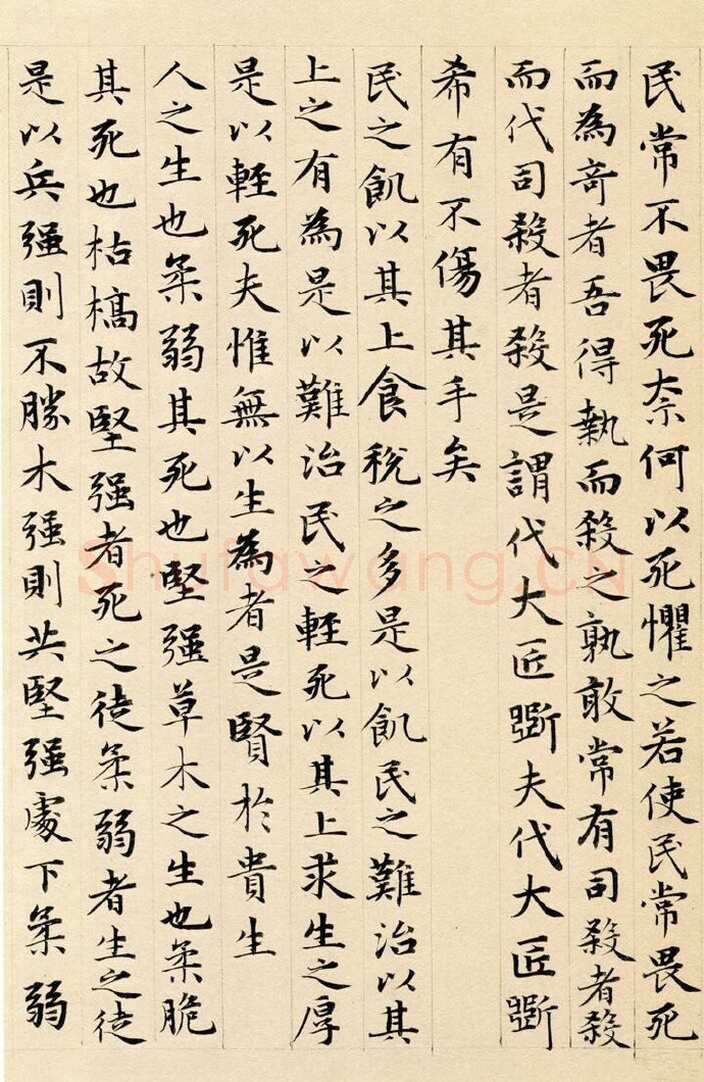 民常不畏死奈何以死懼之若使民常畏死
而為奇者吾得執而殺之孰敢常有司殺者殺
而代司殺者殺是謂代大匠斲夫代大匠斲
希有不傷其手矣
民之飢以其上食稅之多是以飢民之難治以其
上之有為是以難治民之輕死以其上求生之厚
是以輕死夫惟無以生為者是賢於貴生
人之生也柔弱其死也堅强草木之生也柔脆
其死也枯槁故堅强者死之徒柔弱者生之徒
是以兵强則不勝木强則共堅强處下柔弱
Shufawang.CN